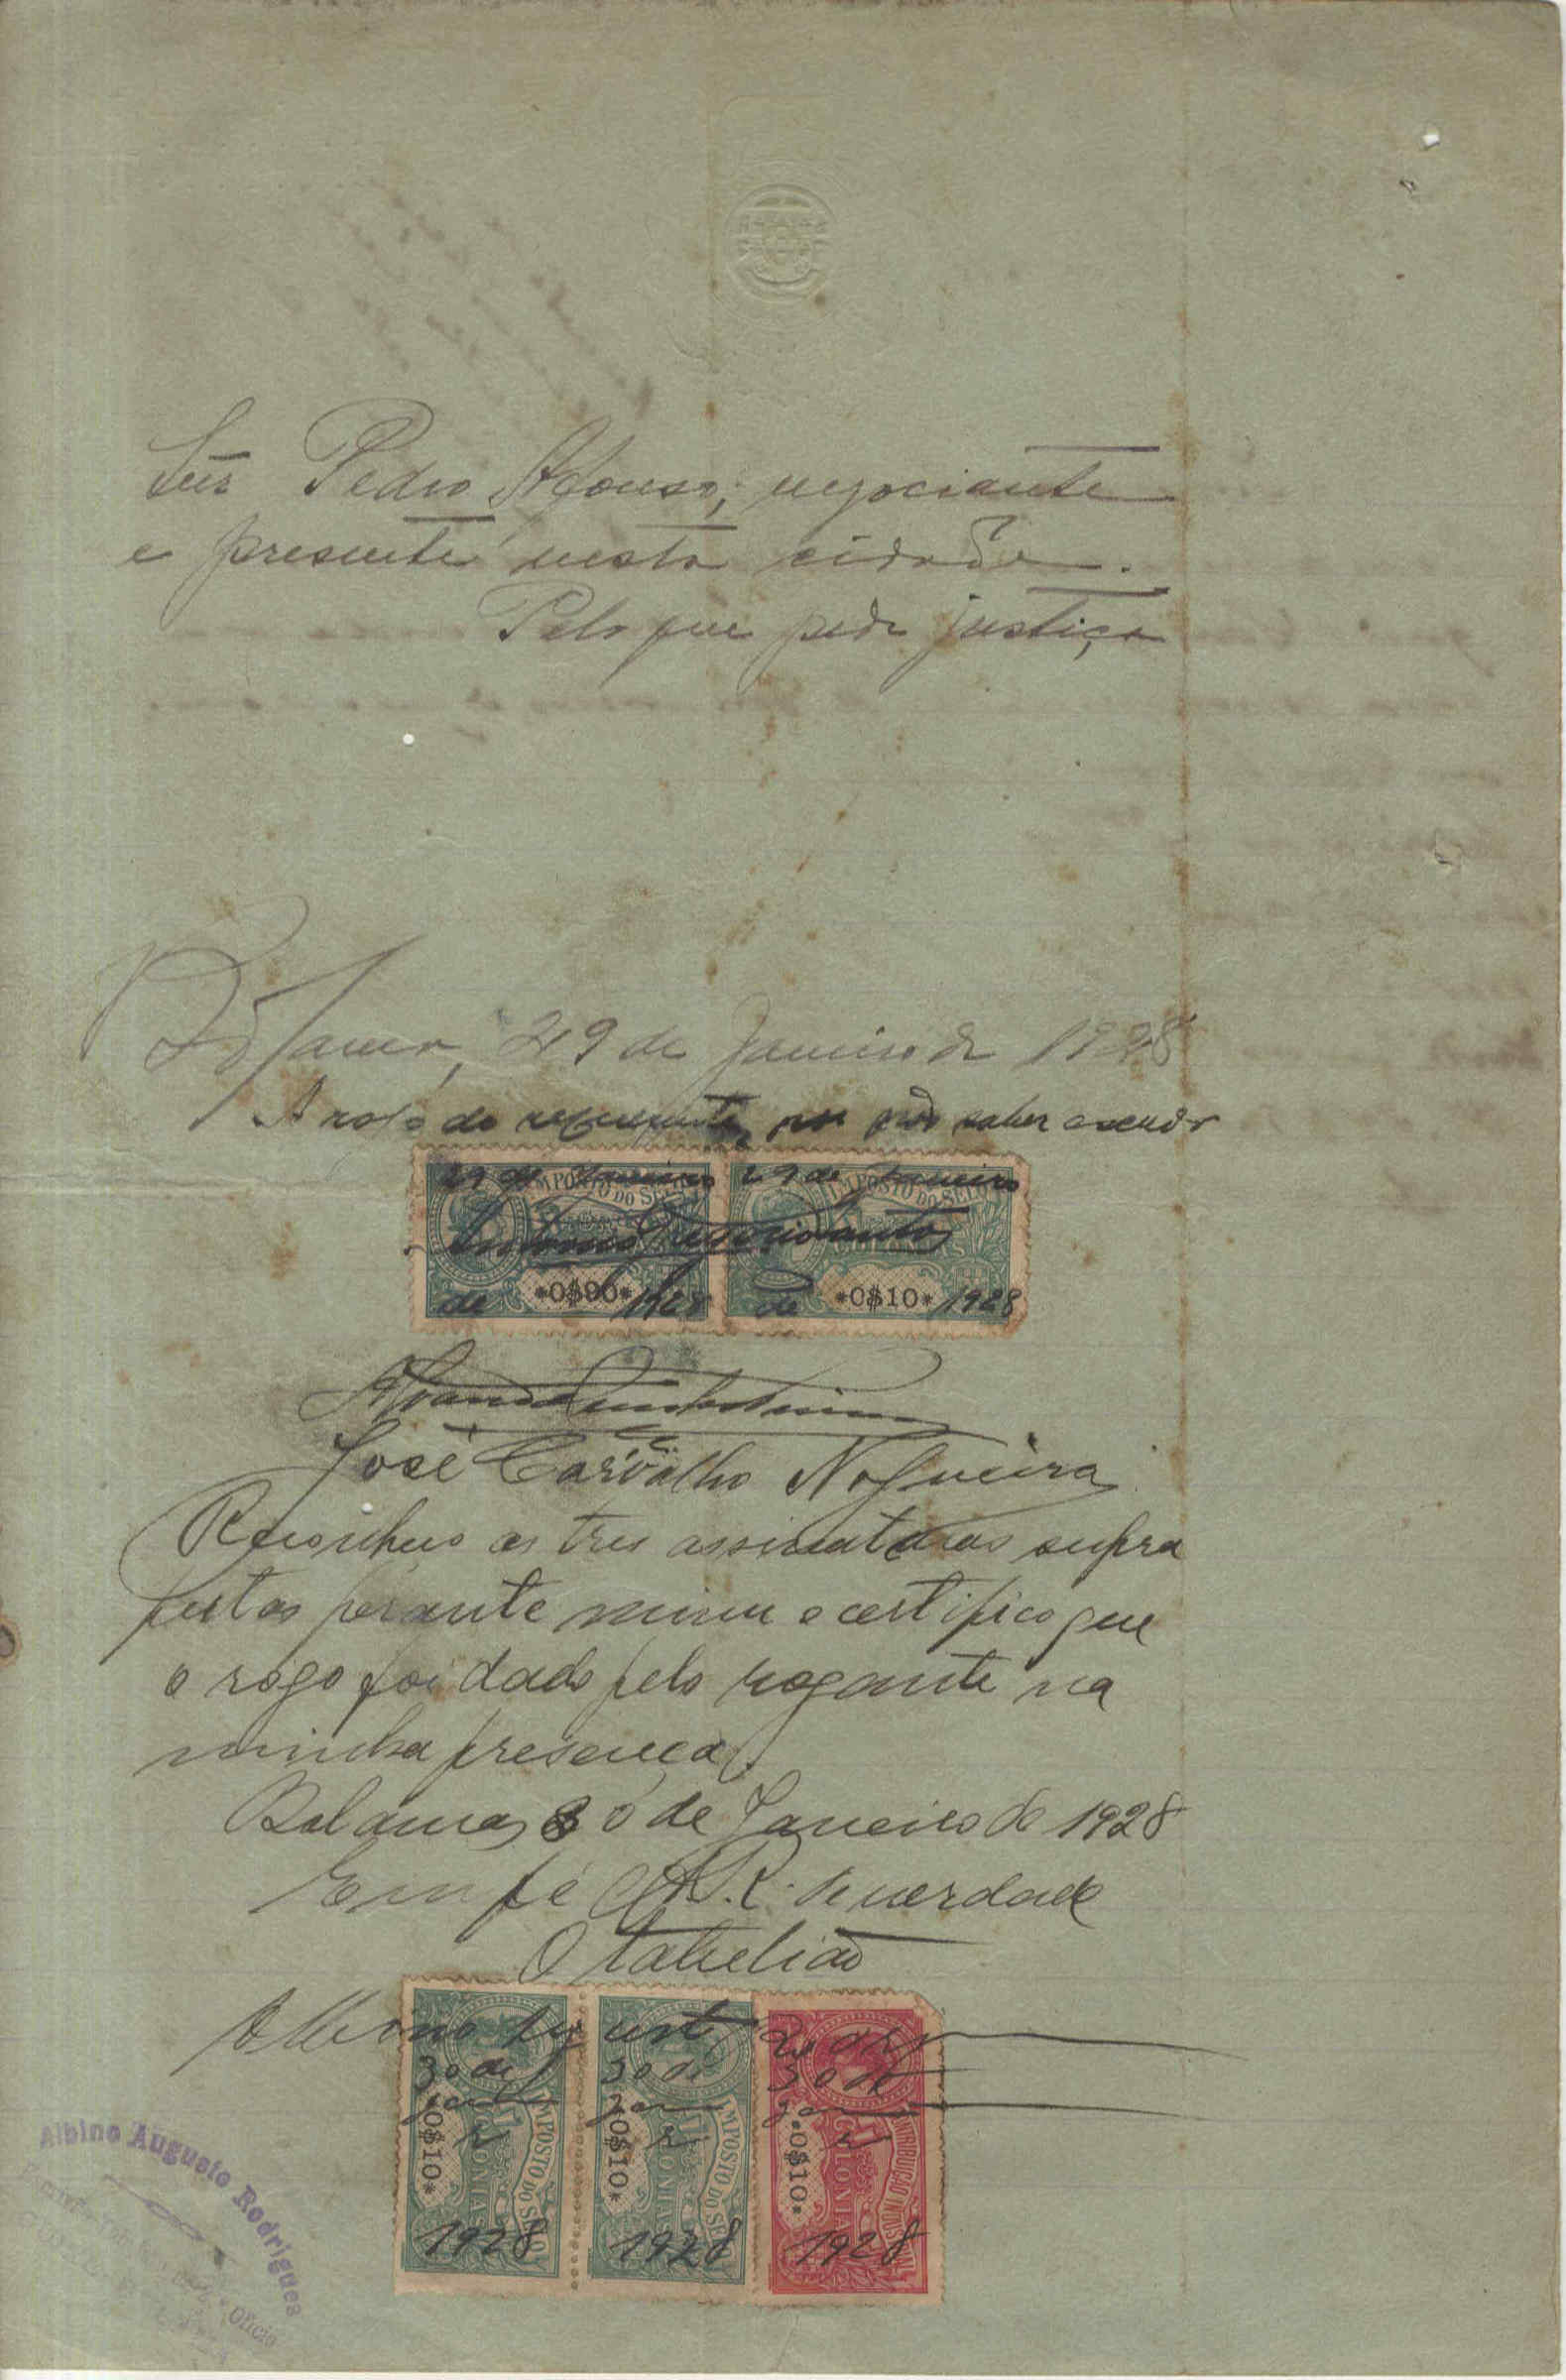 Snr Pedro Afonso, negociante
e presente nesta cidade.
Pelo que pede justiça
Bolama, 29 de Janeiro de 1928
A rogo do requerente, por não saber escrever
29 de Janeiro 29 de Janeiro
IMPOSTO DO SELO IMPOSTO DO SELO
Antonio Santos
COLONIAS
*0$90* *0$10*
de 1928 de 1928
José Carvalho Nogueira
Reconheco as tres assinaturas supra
feitas perante mim e certifico que
o rogo foi dado pelo rogante na
minha presença.
Bolama, 30 de Janeiro de 1928
Em fé A.R. de verdade
O tabelião
Albino Augusto Rodrigues
30 de 30 de 30 de
jan jan jan
IMPOSTO DO SELO IMPOSTO DO SELO CONTRIBUIÇÃO INDUSTRIAL
COLONIAS COLONIAS COLONIAS
*0$10* *0$10* *0$10*
1928 1928 1928
Albino Augusto Rodrigues
Oficio